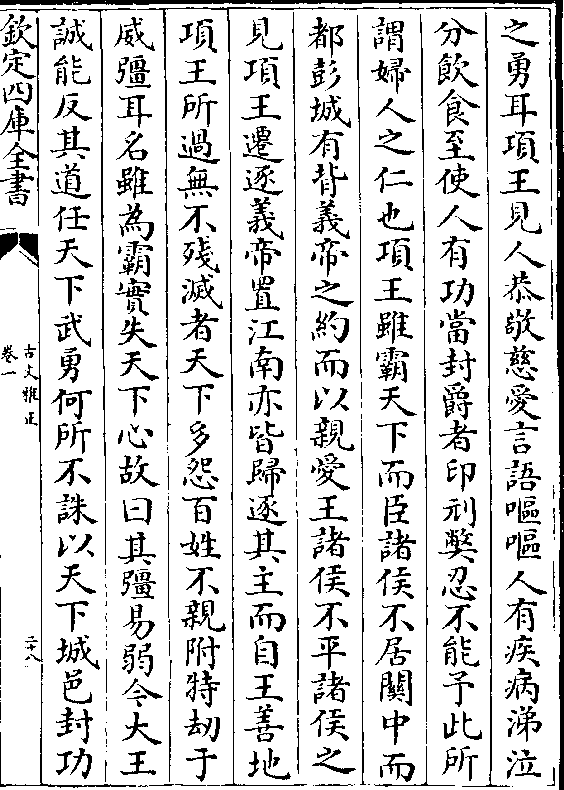 之勇耳項王見人恭敬慈愛言語嘔嘔人有疾病涕泣
分飲食至使人有功當封爵者印刓弊忍不能予此所
謂婦人之仁也項王雖霸天下而臣諸侯不居關中而
都彭城有背義帝之約而以親愛王諸侯不平諸侯之
見項王遷逐義帝置江南亦皆歸逐其主而自王善地
項王所過無不殘滅者天下多怨百姓不親附特劫于
威彊耳名雖為霸實失天下心故曰其彊易弱今大王
誠能反其道任天下武勇何所不誅以天下城邑封功
欽定四庫全書
古文雅正
卷一
二十八